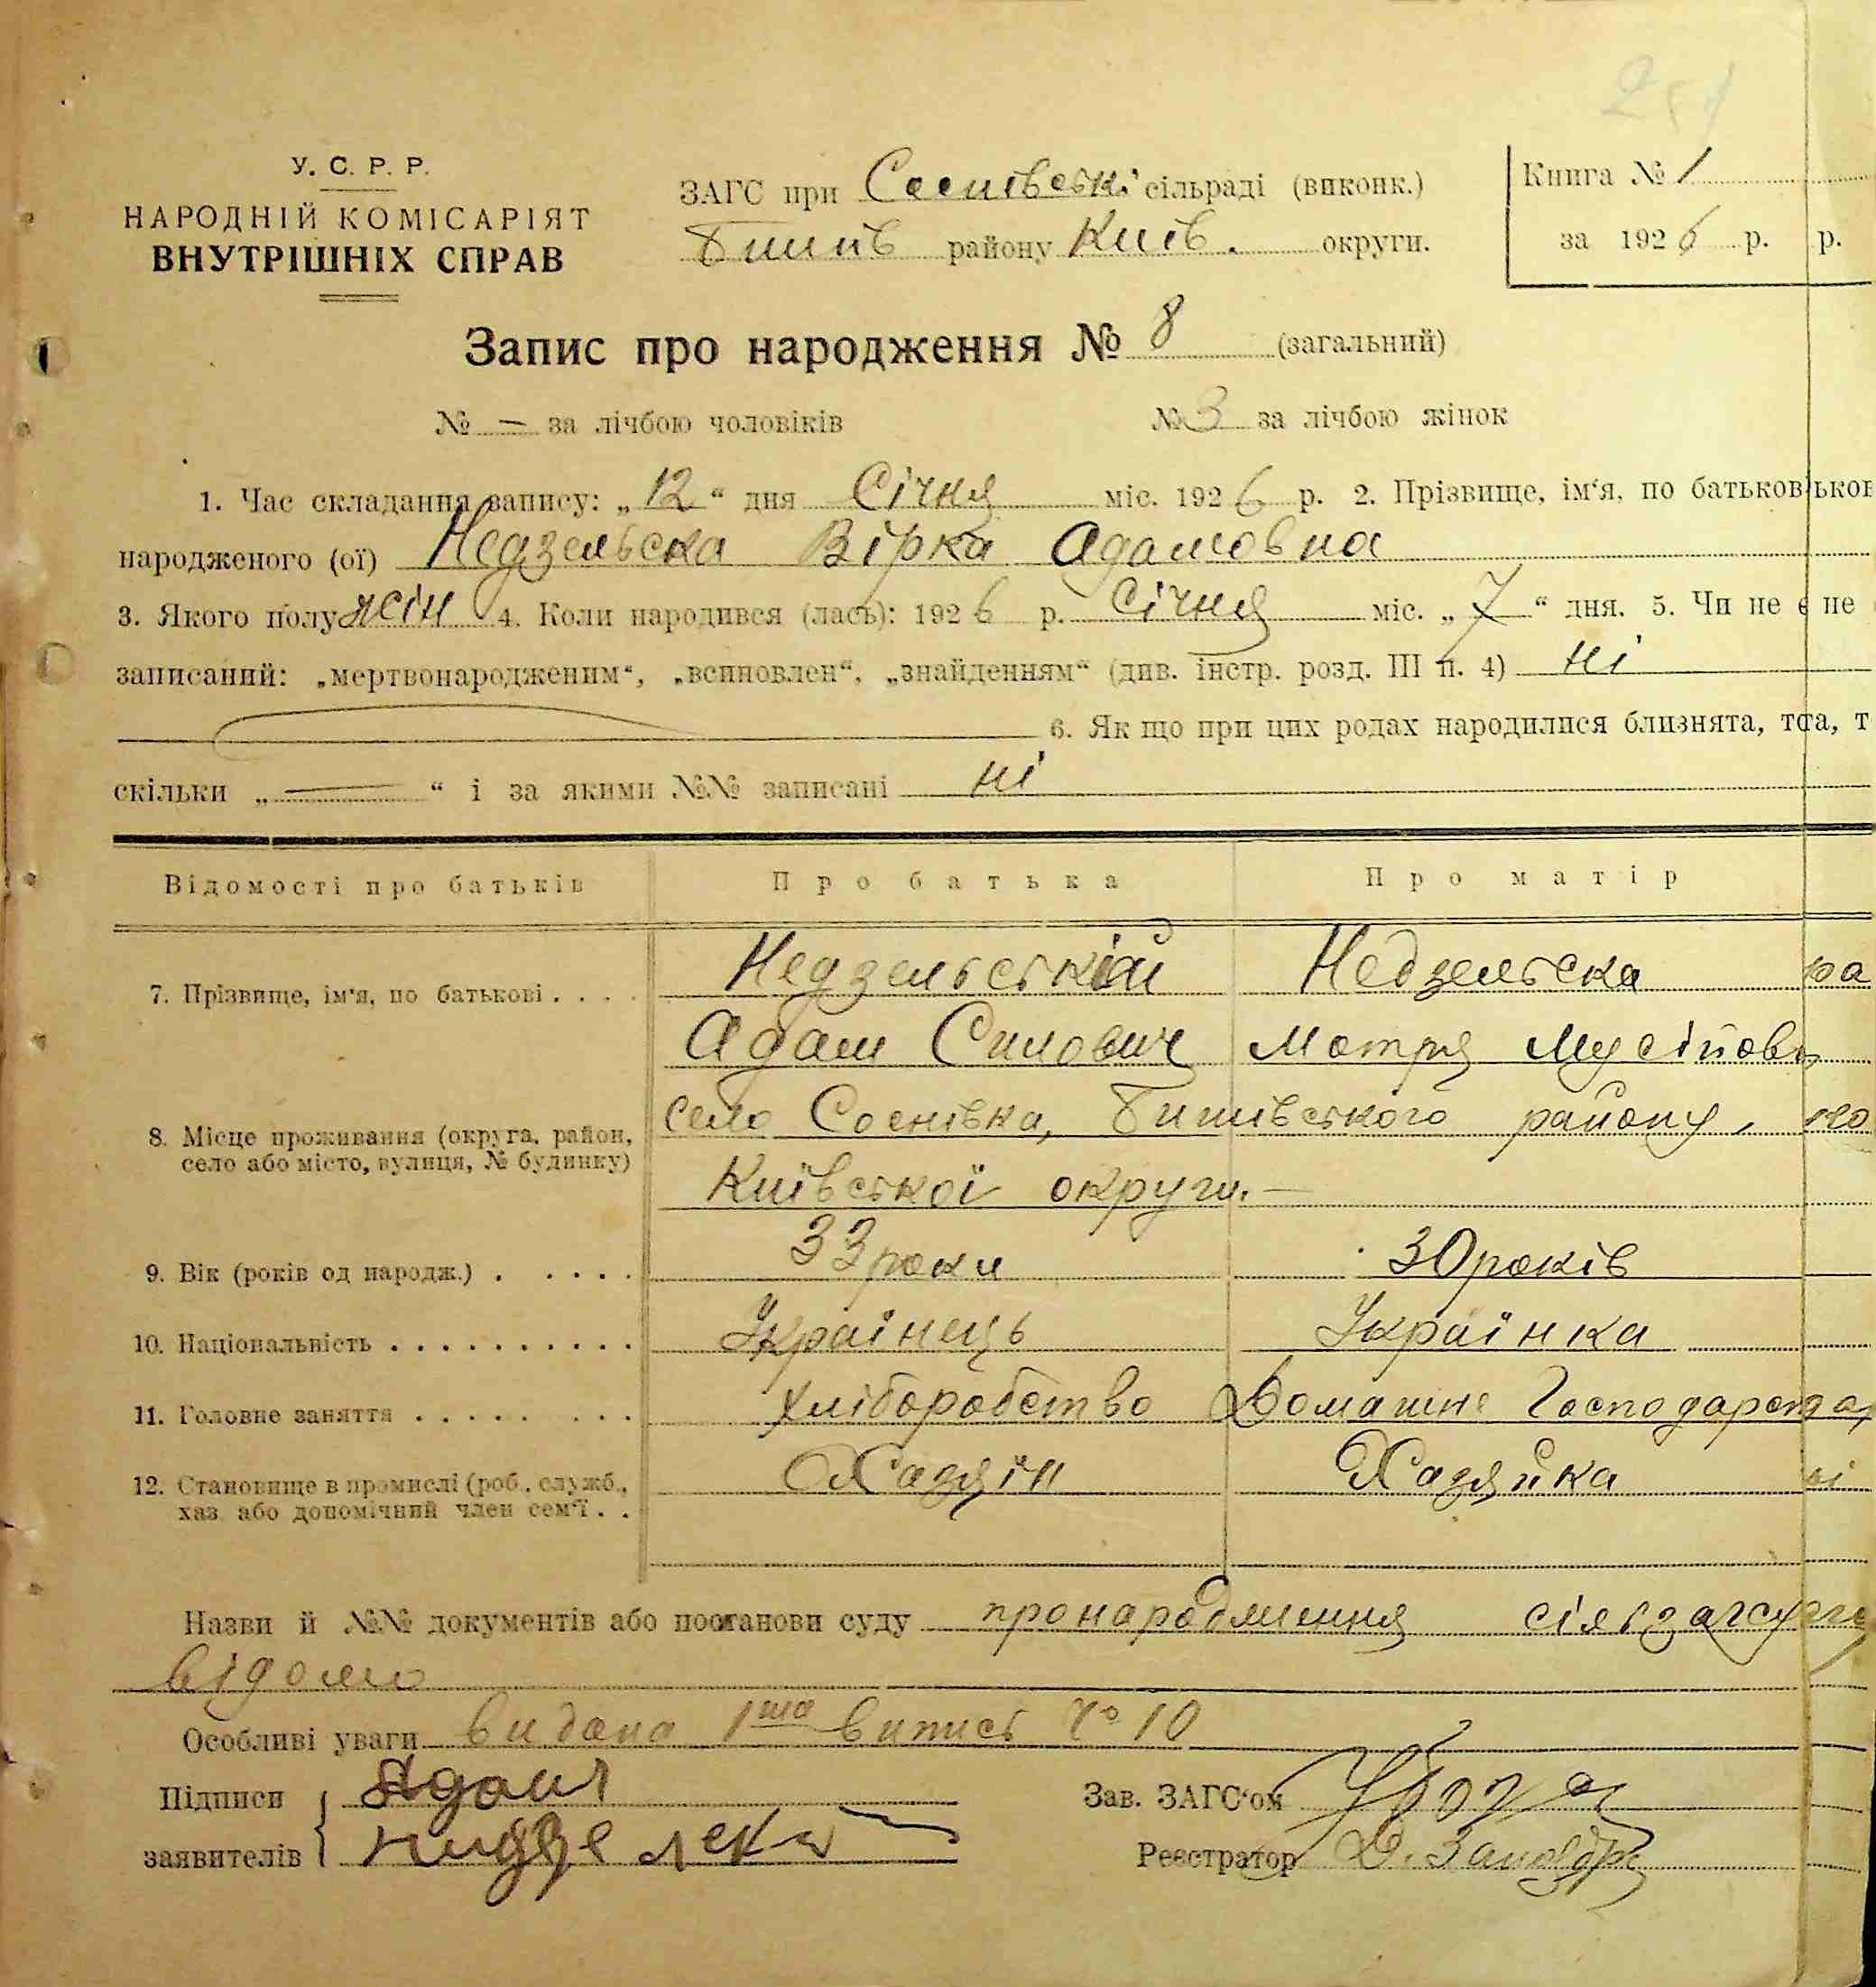 У. С. Р. Р.
НАРОДНІЙ КОМІСАРІЯТ
ВНУТРІШНІХ СПРАВ
ЗАГС при Соснівські сільраді (виконк.)
Бишів району Київ. округи.
Книга № 1
за 1926 р. р.
Запис про народження № 8 (загальний)
№ — за лічбою чоловіків № 3 за лічбою жінок
1. Час складання запису: „12“ дня Січня міс. 1926 р. 2. Прізвище, ім‘я, по батьков
народженого (ої) Недзельска Вірка Адамовна
3. Якого полу жін 4. Коли народився (лась): 1926 р. Січня міс. „7“ дня. 5. Чи не є не
записаний: „мертвонародженим“, „всиновлен“, „знайденням“ (див. інстр. розд. III п. 4) ні
6. Як що при цих родах народилися близнята, то
скільки „—“ і за якими №№ записані ні
Відомості про батьків Про батька Про матір
7. Прізвище, ім‘я, по батькові . . . . Недзельській Недзельска
Адам Силович Мотря Мусіївн
8. Місце проживання (округа, район, село Соснівка, Бишівського району,
село або місто, вулиця, № будинку)
Київської округи.—
9. Вік (років од народж.) . . . . . 33 роки 30 років
10. Національність . . . . . . . . . . Українець Українка
11. Головне заняття . . . . . . . . Хліборобство Домашне Господарст
12. Становище в промислі (роб., служб., Хазяїн Хазяйка
хаз. або допомічний член сем‘ї . .
Назви й №№ документів або постанови суду про народження
відомо
Особливі уваги видана 1ша випись № 10
Підписи Адам
заявителів
Зав. ЗАГС‘ом
Реєстратор